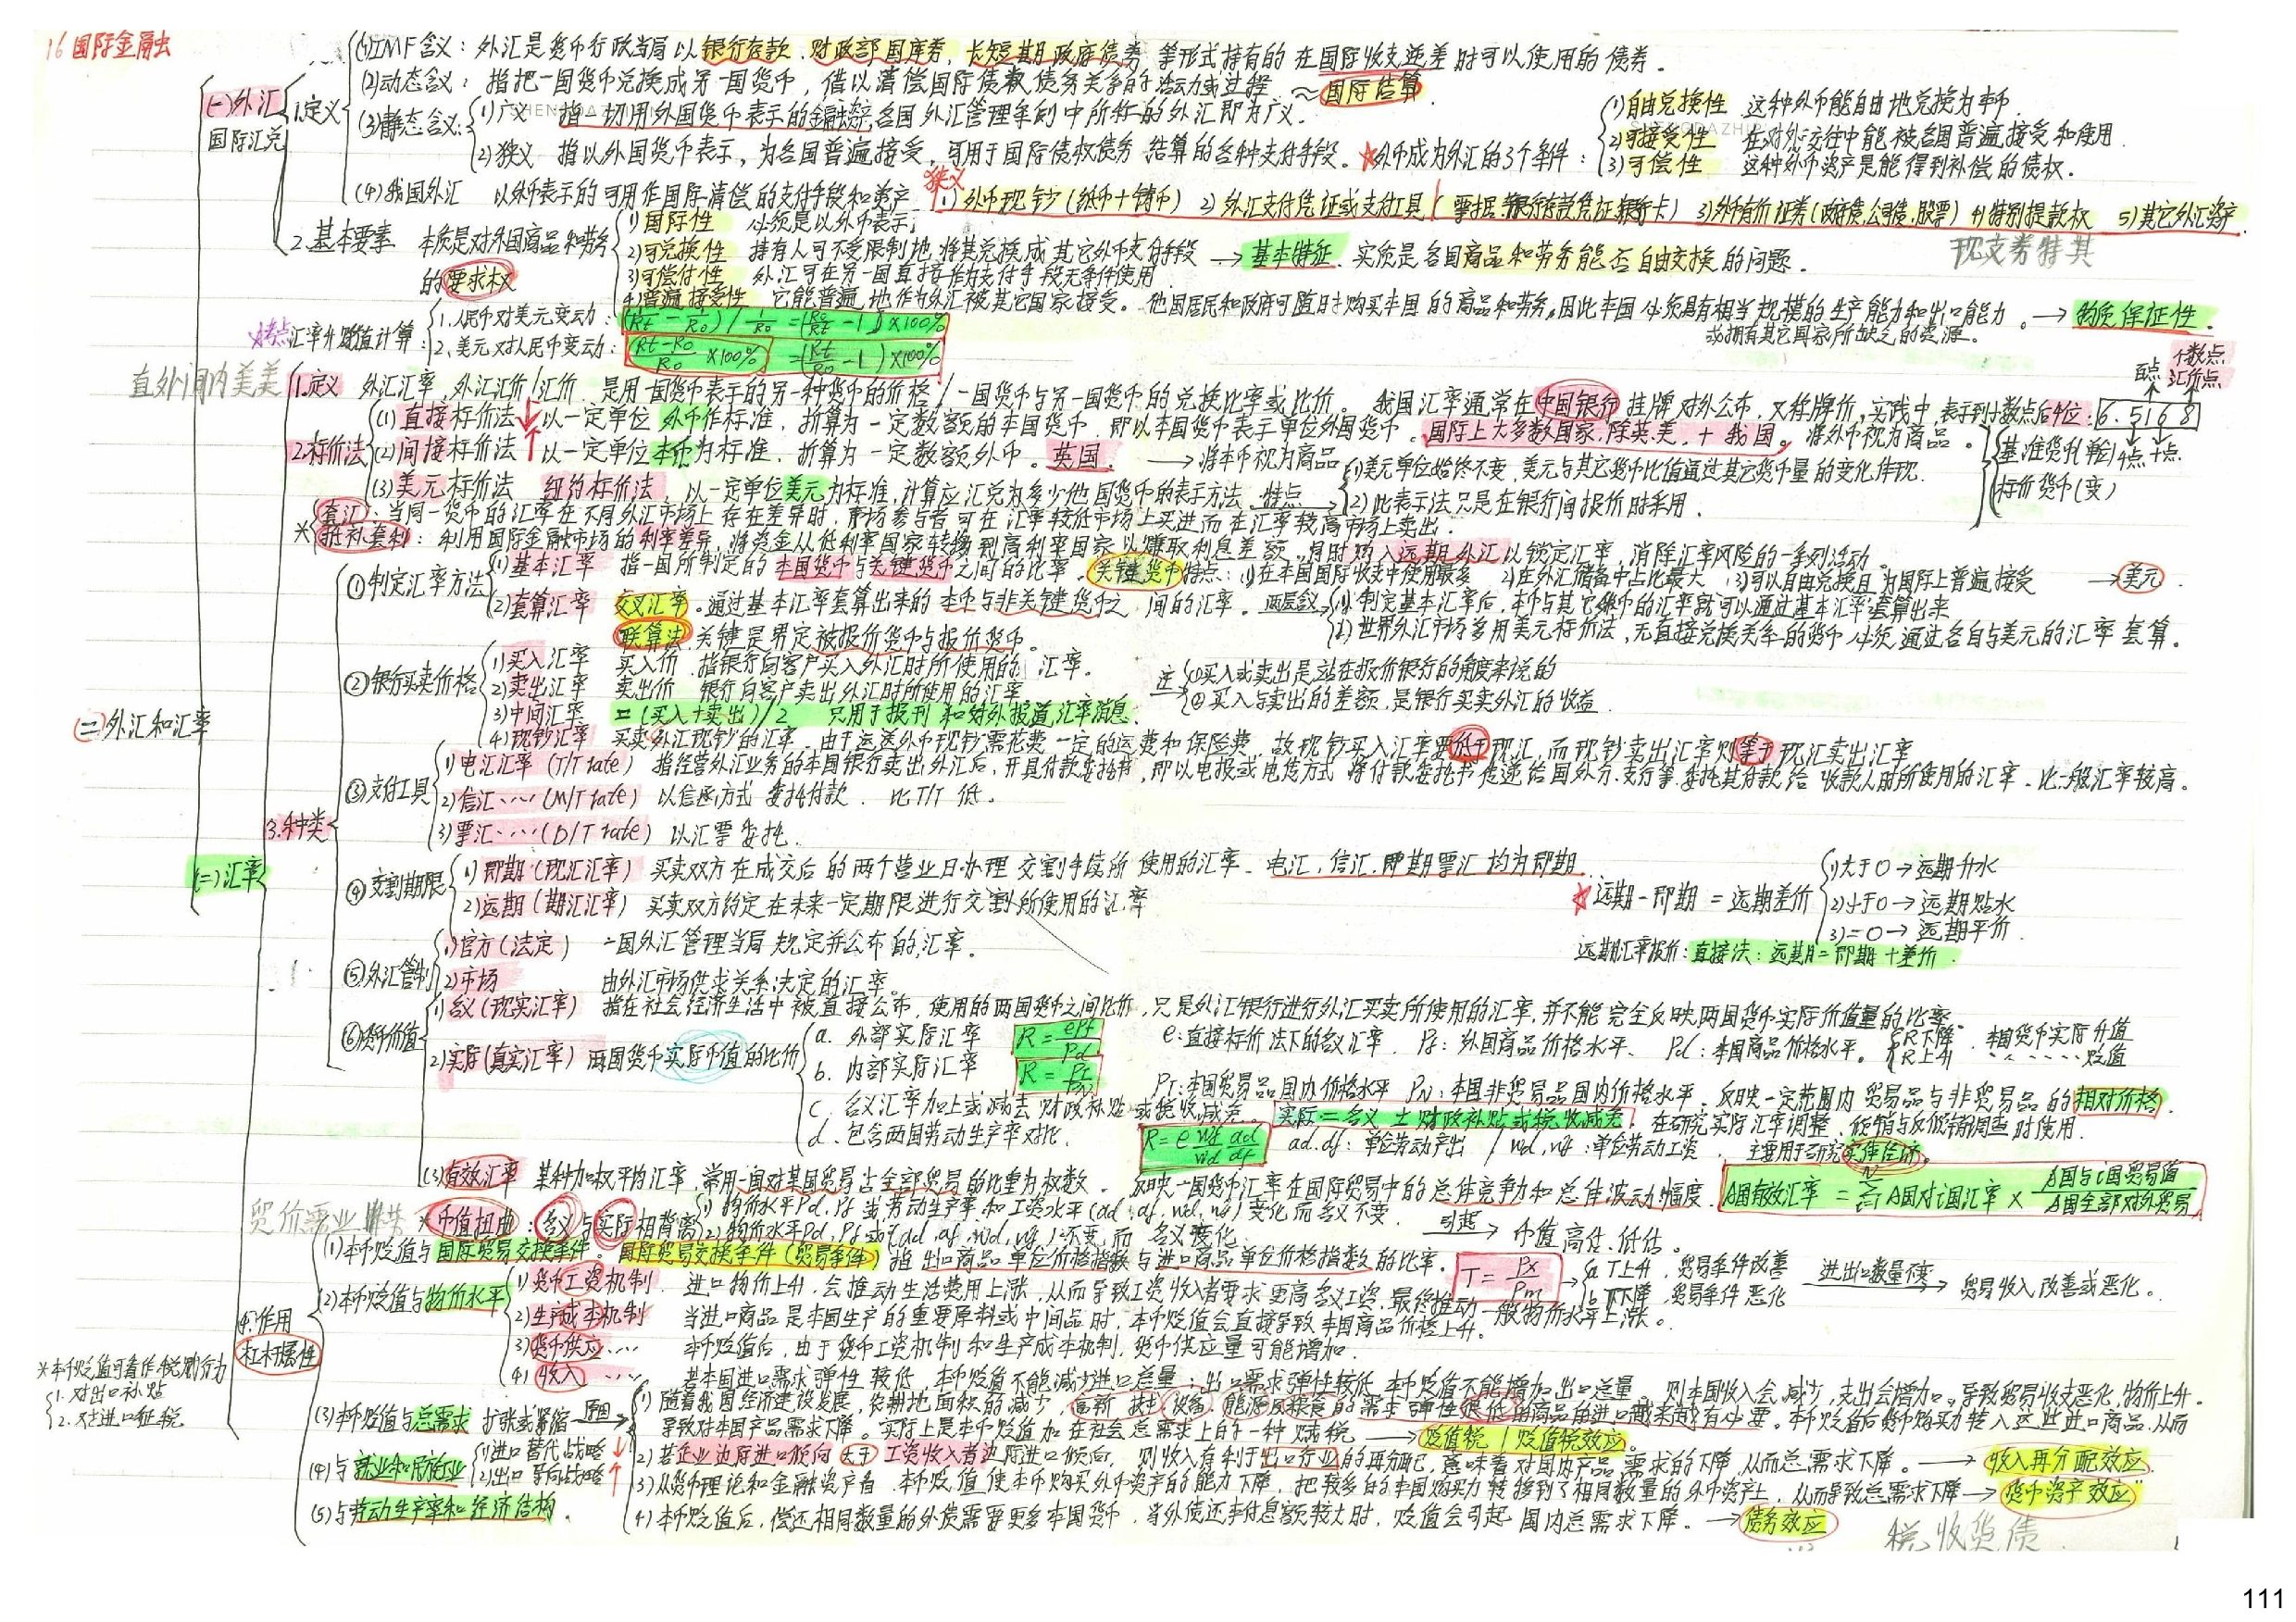 16 国际金融
(一)外汇
国际汇兑
1.定义
(1)IMF含义：外汇是货币行政当局以银行存款、财政部国库券、长短期政府债券等形式持有的在国际收支逆差时可以使用的债券。
(2)动态含义：指把一国货币兑换成另一国货币，借以清偿国际债权债务关系的活动或过程 ≈ 国际结算
(3)静态含义：
1)广义 指一切用外国货币表示的金融资产，各国外汇管理条例中所称的外汇即为广义。
2)狭义 指以外国货币表示，为各国普遍接受，可用于国际债权债务结算的各种支付手段。
外币成为外汇的3个条件：
(1)自由兑换性 这种外币能自由地兑换为本币
(2)可接受性 在对外交往中能被各国普遍接受和使用
(3)可偿性 这种外币资产是能得到补偿的债权.
(4)我国外汇 以外币表示的可用作国际清偿的支付手段和资产
狭义
1)外币现钞(纸币+铸币) 2)外汇支付凭证或支付工具(票据、银行存款凭证、银行卡) 3)外币有价证券(政府债、公司债、股票) 4)特别提款权 5)其它外汇资产
现支券特其
2.基本要素 本质是对外国商品和劳务的要求权
1)国际性 必须是以外币表示；
2)可兑换性 持有人可不受限制地将其兑换成其它外币支付手段 → 基本特征 实质是各国商品和劳务能否自由交换的问题.
3)可偿付性 外汇可在另一国直接作为支付手段无条件使用
4)普遍接受性 它能普遍地作为外汇被其它国家接受。他国居民和政府可随时购买本国的商品和劳务，因此本国必须具有相当规模的生产能力和出口能力。→ 物质保证性.
或拥有其它国家所缺乏的资源。
汇率升贬值计算：
1.人民币对美元变动：(1/Rt - 1/R0) / 1/R0 = (R0/Rt - 1)×100%
2.美元对人民币变动：(Rt-R0)/R0 ×100% = (Rt/R0 - 1)×100%
直外间内美美
1.定义 外汇汇率，外汇汇价/汇价 是用一国货币表示的另一种货币的价格/一国货币与另一国货币的兑换比率或比价。 我国汇率通常在中国银行挂牌对外公布，又称牌价，实践中，表示到小数点后4位：6.5168
百点 个数点 汇价点
千点 十点
2.标价法
(1)直接标价法↓ 以一定单位外币作标准，折算为一定数额的本国货币，即以本国货币表示单位外国货币。国际上大多数国家，除英、美，+我国。 将外币视为商品。
(2)间接标价法↑ 以一定单位本币为标准，折算为一定数额外币。英国. → 将本币视为商品
(3)美元标价法 纽约标价法，以一定单位美元为标准，计算应汇兑为多少他国货币的表示方法
特点
1)美元单位始终不变，美元与其它货币比值通过其它货币量的变化体现.
(2)此表示法只是在银行间报价时采用.
标价货币(变)
套汇：当同一货币的汇率在不同外汇市场上存在差异时，市场参与者可在汇率较低市场上买进而在汇率较高市场上卖出.
抵补套利：利用国际金融市场的利率差异，将资金从低利率国家转移到高利率国家以赚取利息差额，同时购入远期外汇以锁定汇率，消除汇率风险的一系列活动.
(二)外汇和汇率
(二)汇率
3.种类
①制定汇率方法
(1)基本汇率 指一国所制定的本国货币与关键货币之间的比率. 关键货币特点：(1)在本国国际收支中使用最多 2)在外汇储备中占比最大 (3)可以自由兑换且为国际上普遍接受 → 美元
(2)套算汇率 交叉汇率。通过基本汇率套算出来的本币与非关键货币之间的汇率。
两层含义
(1)制定基本汇率后，本币与其它外币的汇率就可以通过基本汇率套算出来
(2)世界外汇市场多用美元标价法，无直接兑换关系的货币必须通过各自与美元的汇率套算。
联算法 关键是界定被报价货币与报价货币.
②银行买卖价格
1)买入汇率 买入价 指银行向客户买入外汇时所使用的汇率.
2)卖出汇率 卖出价 银行向客户卖出外汇时所使用的汇率
3)中间汇率 =(买入+卖出)/2 只用于报刊和对外报道汇率消息.
4)现钞汇率 买卖外汇现钞的汇率，由于运送外币现钞需花费一定的运费和保险费，故现钞买入汇率要低于现汇，而现钞卖出汇率则等于现汇卖出汇率
注
①买入或卖出是站在报价银行的角度来说的
②买入与卖出的差额，是银行买卖外汇的收益
③支付工具
1)电汇汇率(T/T rate) 指经营外汇业务的本国银行卖出外汇后，开具付款委托书，即以电报或电传方式将付款委托书传递给国外分支行等委托其付款给收款人时所使用的汇率. 比一般汇率较高。
2)信汇…(M/T rate) 以信函方式委托付款. 比T/T低.
(3)票汇…(D/T rate) 以汇票委托.
④交割期限
1)即期(现汇汇率) 买卖双方在成交后的两个营业日办理交割手续所使用的汇率. 电汇，信汇，即期票汇均为即期
2)远期(期汇汇率) 买卖双方约定在未来一定期限进行交割所使用的汇率
远期-即期=远期差价
1)大于0→远期升水
2)小于0→远期贴水
3)=0→远期平价
远期汇率报价：直接法：远期=即期+差价
⑤外汇管制
1)官方(法定) 一国外汇管理当局规定并公布的汇率.
2)市场 由外汇市场供求关系决定的汇率.
⑥货币价值
1)名义(现实汇率) 指在社会经济生活中被直接公布，使用的两国货币之间比价，只是外汇银行进行外汇买卖所使用的汇率，并不能完全反映两国货币实际价值量的比率.
2)实际(真实汇率) 两国货币实际币值的比价
a. 外部实际汇率 R=ePf/Pd e：直接标价法下的名义汇率. Pf：外国商品价格水平、 Pd：本国商品价格水平。 R下降 本国货币实际升值 R上升 …… 贬值
b. 内部实际汇率 R=PT/PN PT：本国贸易品国内价格水平 PN：本国非贸易品国内价格水平. 反映一定范围内贸易品与非贸易品的相对价格
c. 名义汇率加上或减去财政补贴或税收减免. 实际=名义±财政补贴或税收减免. 在研究实际汇率调整、倾销与反倾销调查时使用.
d. 包含两国劳动生产率对比. R=e wf/wd ad/df ad.df：单位劳动产出 / wd,wf：单位劳动工资 主要用于研究实体经济.
(3)有效汇率 某种加权平均汇率，常用一国对某国贸易占全部贸易的比重为权数. 反映一国货币汇率在国际贸易中的总体竞争力和总体波动幅度. A国有效汇率=Σ A国对i国汇率 × A国与i国贸易值/A国全部对外贸易
币值扭曲：名义与实际相背离
(1)物价水平Pd、Pf或劳动生产率和工资水平(ad,af,wd,wf)变化而名义不变.
(2)物价水平Pd,Pf或(ad,af,wd,wf)不变，而名义变化.
引起→ 币值高估、低估。
4.作用
杠杆属性
(1)本币贬值与国际贸易交换条件。国际贸易交换条件(贸易条件)指出口商品单位价格指数与进口商品单位价格指数的比率. T=Px/Pm
a T上升，贸易条件改善
b T下降，贸易条件恶化
进出口数量不变→ 贸易收入改善或恶化。
(2)本币贬值与物价水平
1)货币工资机制 进口物价上升，会推动生活费用上涨，从而导致工资收入者要求更高名义工资，最终推动一般物价水平上涨。
2)生产成本机制 当进口商品是本国生产的重要原料或中间品时，本币贬值会直接导致本国商品价格上升。
3)货币供应… 本币贬值后，由于货币工资机制和生产成本机制，货币供应量可能增加.
4)收入… 若本国进口需求弹性较低，本币贬值不能减少进口总量；出口需求弹性较低，本币贬值不能增加出口总量。则本国收入会减少，支出会增加，导致贸易收支恶化，物价上升.
*本币贬值可看作税赋行为
1.对出口补贴
2.对进口征税
(3)本币贬值与总需求 扩张或紧缩 原因→
1)随着我国经济建设发展，农耕地面积的减少，高新技术、设备、能源及粮食的需求弹性很低的商品的进口越来越有必要。本币贬值后货币购买力转入这些进口商品，从而
导致对本国产品需求下降。实际上是本币贬值加在社会总需求上的一种赋税 → 贬值税/贬值税效应。
2)若企业边际进口倾向大于工资收入者边际进口倾向，则收入有利于出口行业的再分配，意味着对国内产品需求的下降，从而总需求下降。→ 收入再分配效应
3)从货币理论和金融资产看 本币贬值使本币购买外币资产的能力下降，把较多的本国购买力转移到了相同数量的外币资产上，从而导致总需求下降 → 货币资产效应
4)本币贬值后，偿还相同数量的外债需要更多本国货币，当外债还本付息总额较大时，贬值会引起国内总需求下降。→ 债务效应
(4)与就业和民族工业
(1)进口替代战略↓
(2)出口导向战略↑
(5)与劳动生产率和经济结构.
税收货债
111